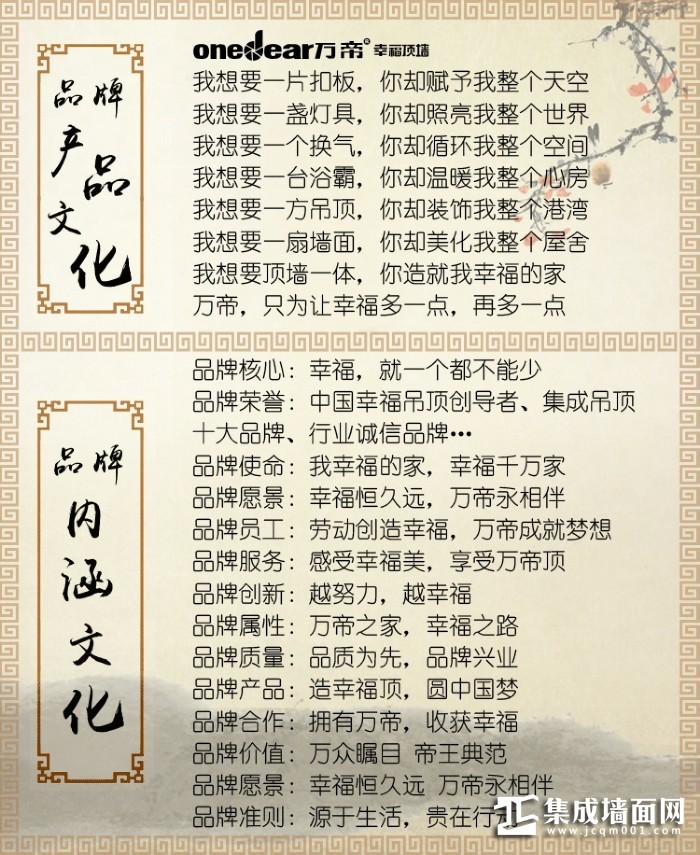 品牌
产品文化
onedear万帝® 幸福顶墙
我想要一片扣板，你却赋予我整个天空
我想要一盏灯具，你却照亮我整个世界
我想要一个换气，你却循环我整个空间
我想要一台浴霸，你却温暖我整个心房
我想要一方吊顶，你却装饰我整个港湾
我想要一扇墙面，你却美化我整个屋舍
我想要顶墙一体，你造就我幸福的家
万帝，只为让幸福多一点，再多一点
品牌
内涵文化
品牌核心：幸福，就一个都不能少
品牌荣誉：中国幸福吊顶创导者、集成吊顶
十大品牌、行业诚信品牌…
品牌使命：我幸福的家，幸福千万家
品牌愿景：幸福恒久远，万帝永相伴
品牌员工：劳动创造幸福，万帝成就梦想
品牌服务：感受幸福美，享受万帝顶
品牌创新：越努力，越幸福
品牌属性：万帝之家，幸福之路
品牌质量：品质为先，品牌兴业
品牌产品：造幸福顶，圆中国梦
品牌合作：拥有万帝，收获幸福
品牌价值：万众瞩目 帝王典范
品牌愿景：幸福恒久远 万帝永相伴
品牌准则：源于生活，贵在行动
集成墙面网
www.jcqm001.com